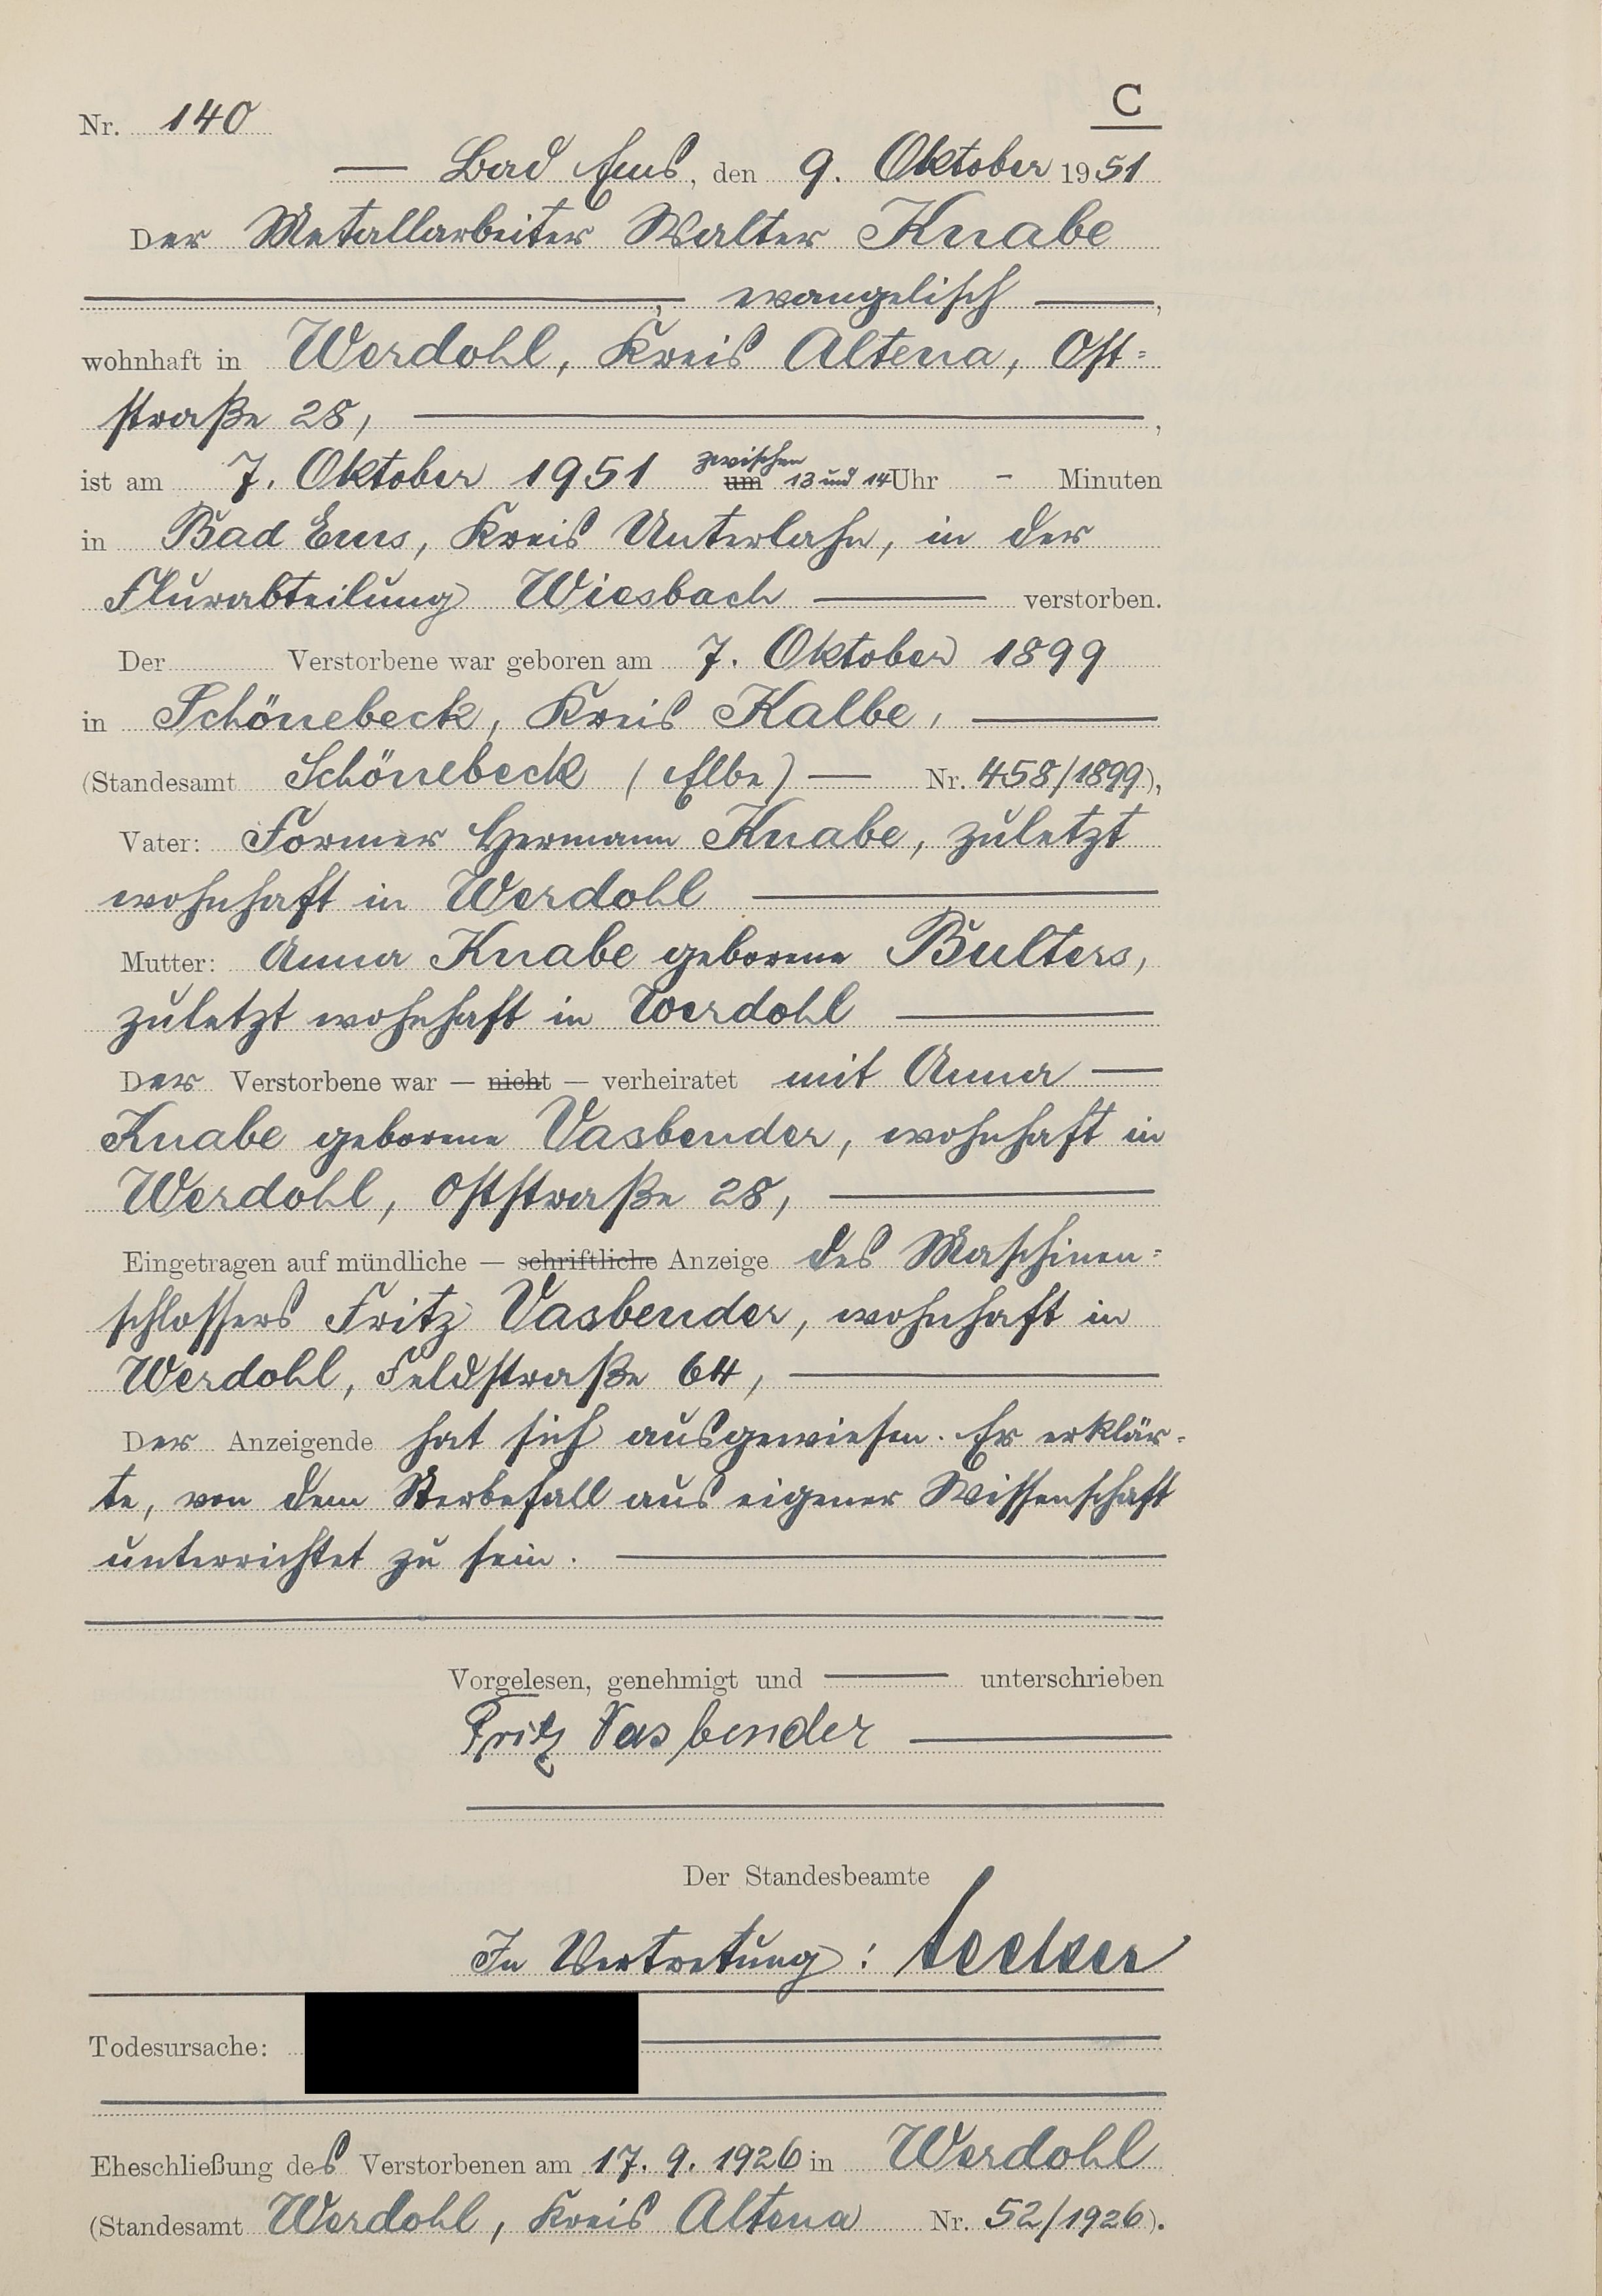 C
Nr. 140
— Bad Ems, den 9. Oktober 1951
Der Metallarbeiter Walter Knabe
—, evangelisch —,
wohnhaft in Werdohl, Kreis Altena, Ost=
straße 28, —,
ist am 7. Oktober 1951 zwischen um 13 und 14 Uhr - Minuten
in Bad Ems, Kreis Unterlahn, in der
Flurabteilung Wiesbach — verstorben.
Der Verstorbene war geboren am 7. Oktober 1899
in Schönebeck, Kreis Kalbe, —
(Standesamt Schönebeck (Elbe) — Nr. 458/1899),
Vater: Former Hermann Knabe, zuletzt
wohnhaft in Werdohl —
Mutter: Anna Knabe geborene Bulters,
zuletzt wohnhaft in Werdohl —
Der Verstorbene war — nicht — verheiratet mit Anna —
Knabe geborene Vasbender, wohnhaft in
Werdohl, Oststraße 28, —
Eingetragen auf mündliche — schriftliche Anzeige des Maschinen=
schlossers Fritz Vasbender, wohnhaft in
Werdohl, Feldstraße 64, —
Der Anzeigende hat sich ausgewiesen. Er erklär-
te, von dem Sterbefall aus eigener Wissenschaft
unterrichtet zu sein. —
Vorgelesen, genehmigt und — unterschrieben
Fritz Vasbender —
Der Standesbeamte
In Vertretung:
Todesursache:
Eheschließung des Verstorbenen am 17. 9. 1926 in Werdohl
(Standesamt Werdohl, Kreis Altena Nr. 52/1926).